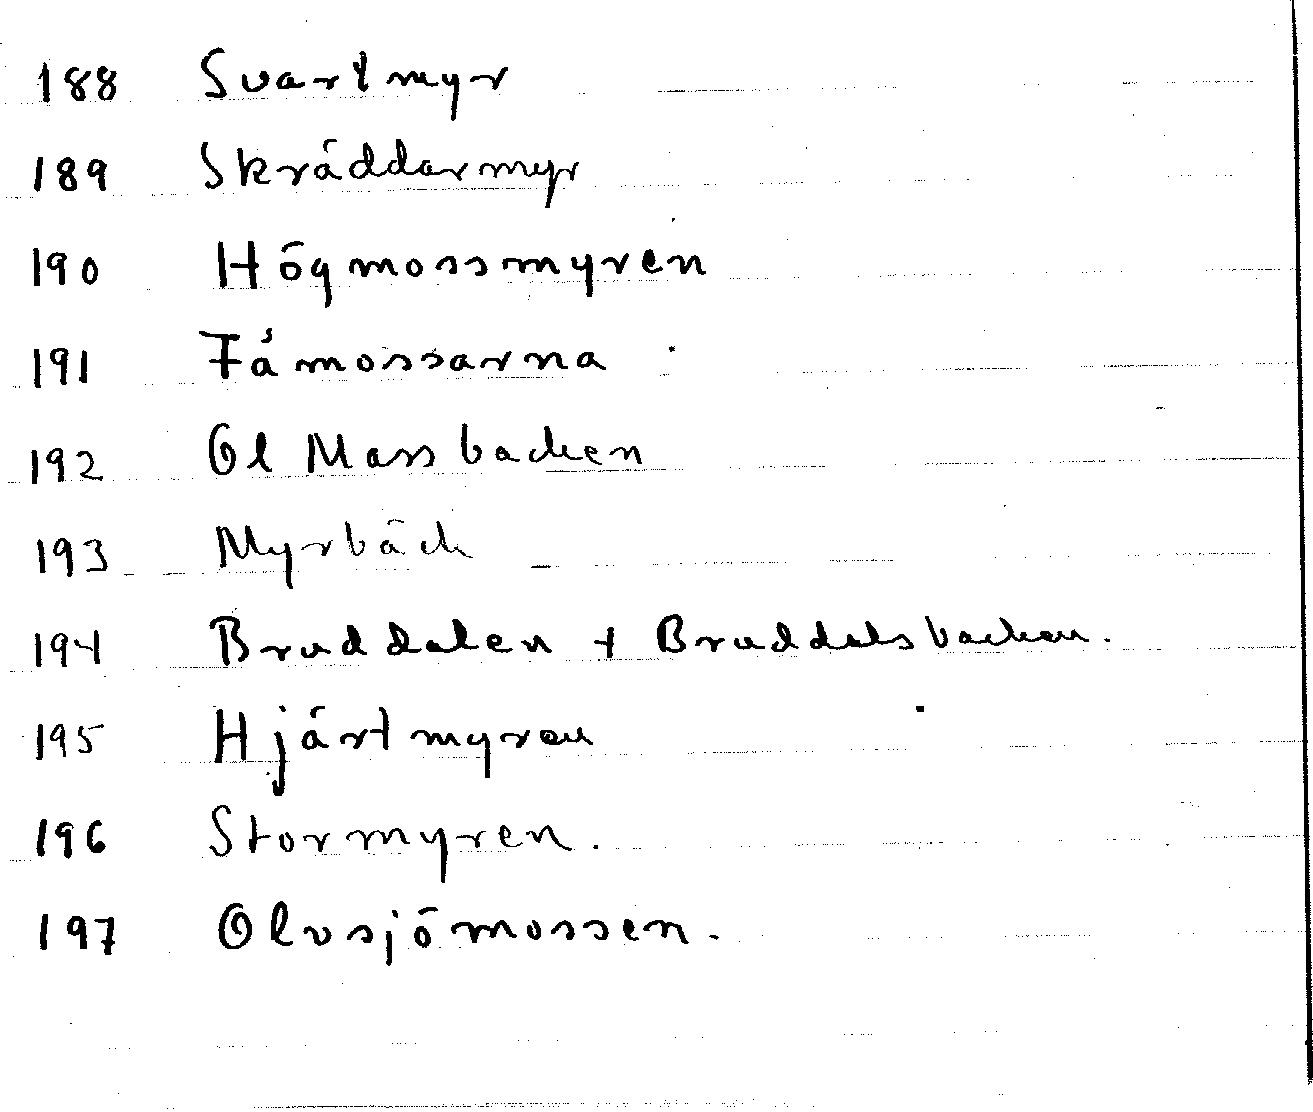 188 Svartmyr
189 Skräddarmyr
190 Högmossmyren
191 Fåmossarna
192 Ol Massbacken
193 Myrbäck
194 Bruddalen + Bruddalsbacken.
195 Hjärtmyren
196 Stormyren.
197 Olvsjömossen.